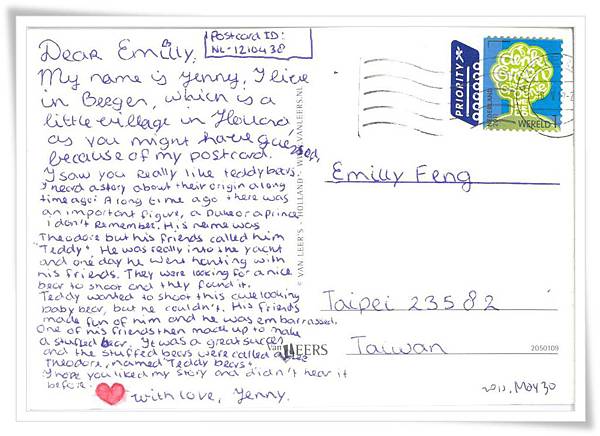 Postcard ID:
NL-1210438
Dear Emilly,
My name is Yenny, I live
in Beegen, which is a
little village in Holland
as you might have guessed,
because of my postcard.
I saw you really like teddybears.
I heard a story about their origin a long
time ago: A long time ago there was
an important figure, a Duke or a prince
I don't remember. His name was
Theodore but his friends called him
"Teddy". He was really into the yacht
and one day he went hunting with
his friends. They were looking for a nice
bear to shoot and they found it.
Teddy wanted to shoot this cute looking
baby bear, but he couldn't. His friends
made fun of him and he was embarrassed.
One of his friends then made up to make
a stuffed bear. It was a great succes
and the stuffed bears were called
Theodore, named "Teddy bears".
I hope you liked my story and didn't hear it
before!
With love, Yenny.
© VAN LEER'S - HOLLAND - WWW.VANLEERS.NL
Van LEERS
PRIORITY
denk
Groen
NEDERLAND
WERELD 1
Emilly Feng
Taipei 23582
Taiwan
2050109
2011, May 30